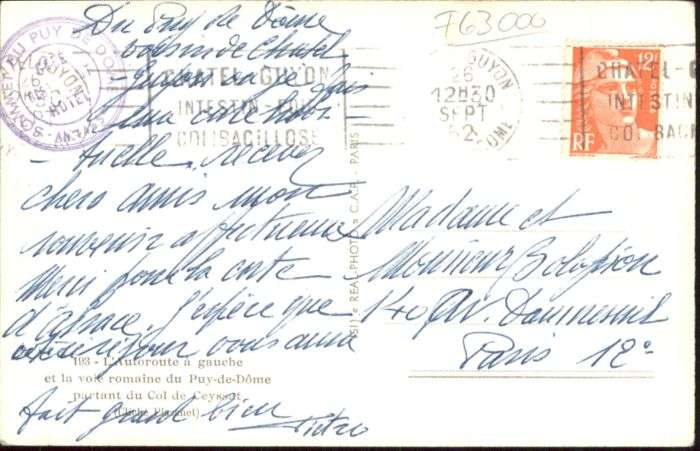 Du Puy de Dôme
voisin de Chatel-
Guyon où je fais
ma cure habi-
tuelle, recevez
chers amis mon
souvenir affectueux
Merci pour la carte
d'Alsace. J'espère que
votre séjour vous aura
fait grand bien
Pietro
193 - L'Autoroute à gauche
et la voie romaine du Puy-de-Dôme
partant du Col de Ceyssat
763000
SOMMET DU PUY DE DOME
HOTEL
CHATEL-GUYON
INTESTIN-FOIE
COLIBACILLOSE
GUYON
26
12H30
SEPT
52
DOME
12F
RF
CHATEL-G
INTESTIN
COLIBAC
"REAL-PHOTO" C.A.P. - PARIS
Madame et
Monsieur
140 Av. Daumesnil
Paris 12e